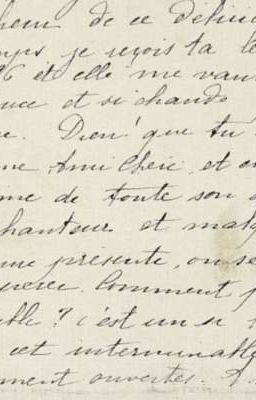 heur de ce délici
mps je reçois ta le
6 et elle me vau
uce et si chaude
e. Dieu! que tu
me Amie Chérie, et on
me de toute son a
hanteur et malg
me présente, on se
Comment p
ble? c'est un si
cet interminable
ment ouvertes.